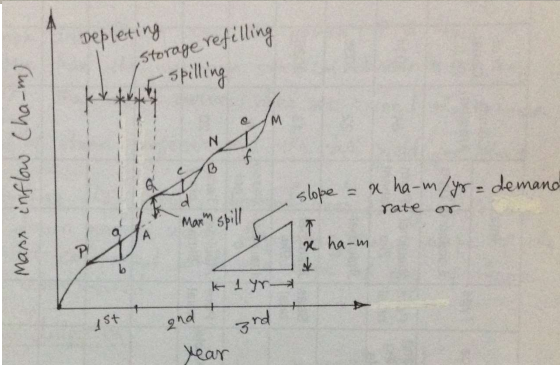 Depleting
storage refilling
spilling
Mass inflow (ha-m)
P
a
b
A
Q
Maxᵐ spill
c
d
B
N
e
f
M
slope = x ha-m/yr = demand
rate or
x ha-m
1 yr
1st
2nd
3rd
year